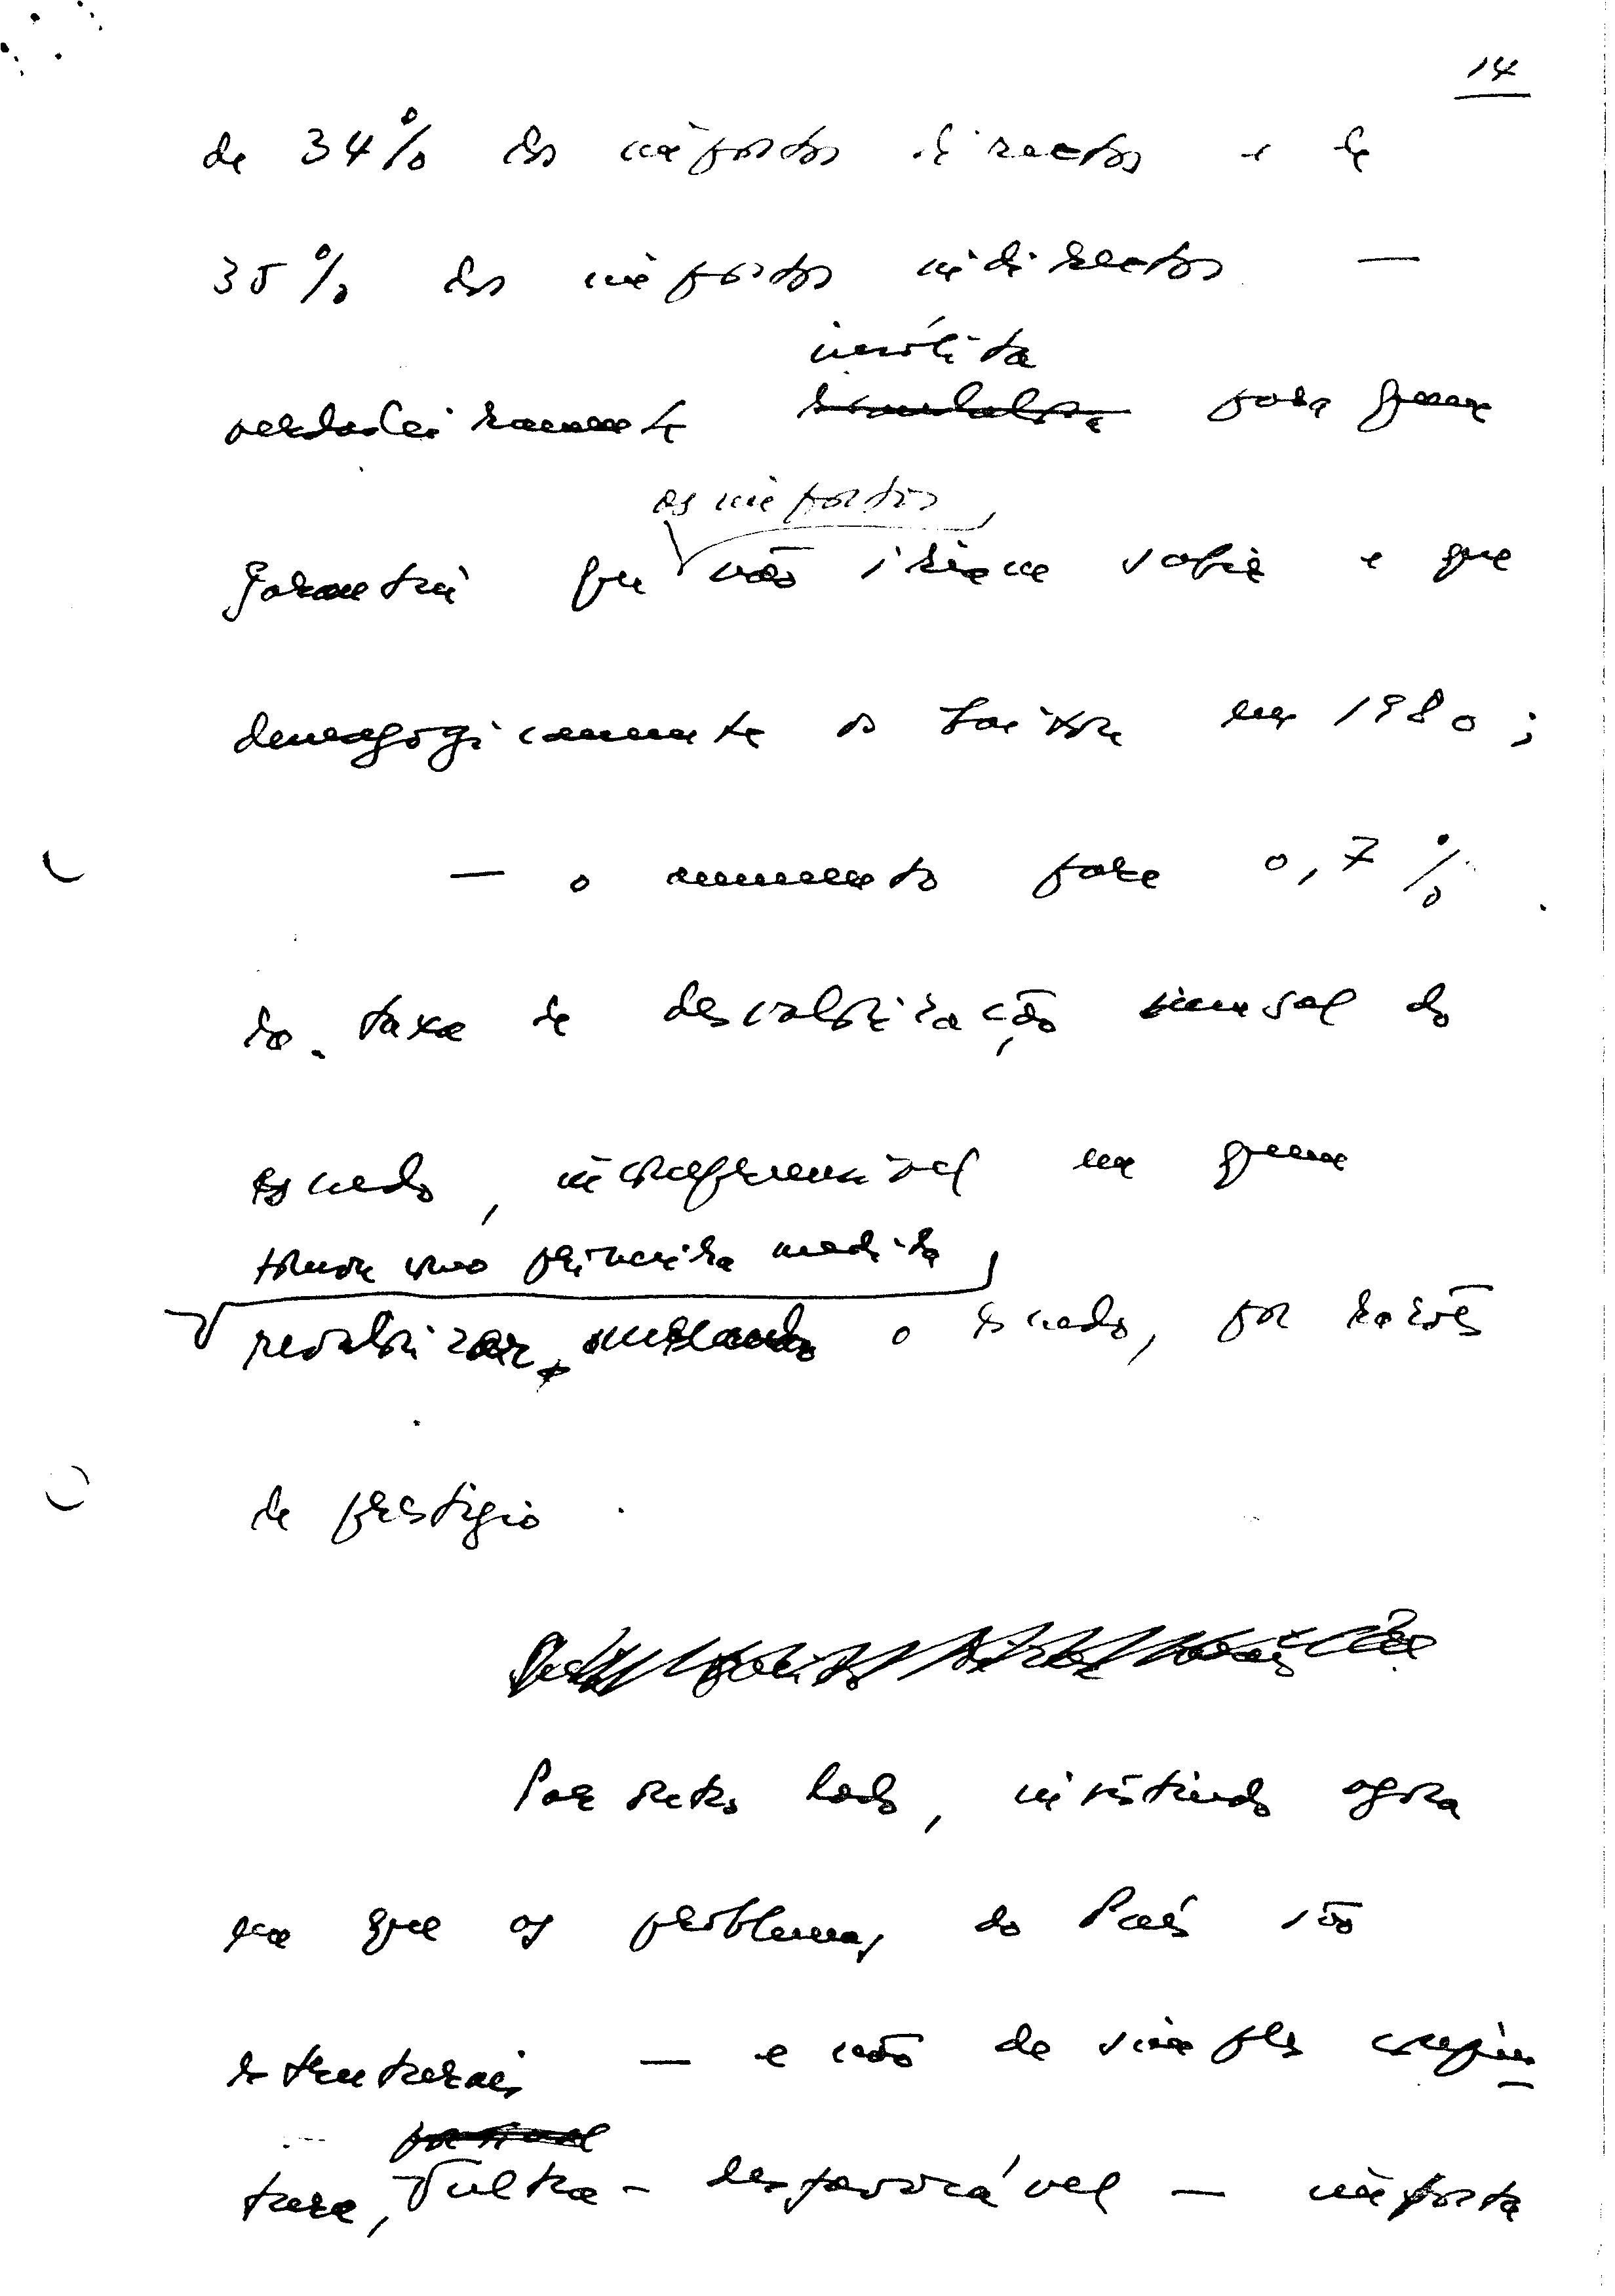 14
de 34% dos impostos directos e de
35% dos impostos indirectos —
insólita
verdadeiramente escandalosa para quem
os impostos
garantiu que não iriam subir e que
demagogicamente os baixou em 1980;
— o aumento para 0,7%
da taxa de desvalorização mensal do
escudo, incompreensível em quem
tomou como primeira medida
revalorizar o escudo, por razões
de prestígio.
Por outro lado, insistindo agora
em que os problemas do País são
estruturais — e não de simples conjun
tura, ultra-desfavorável — importa